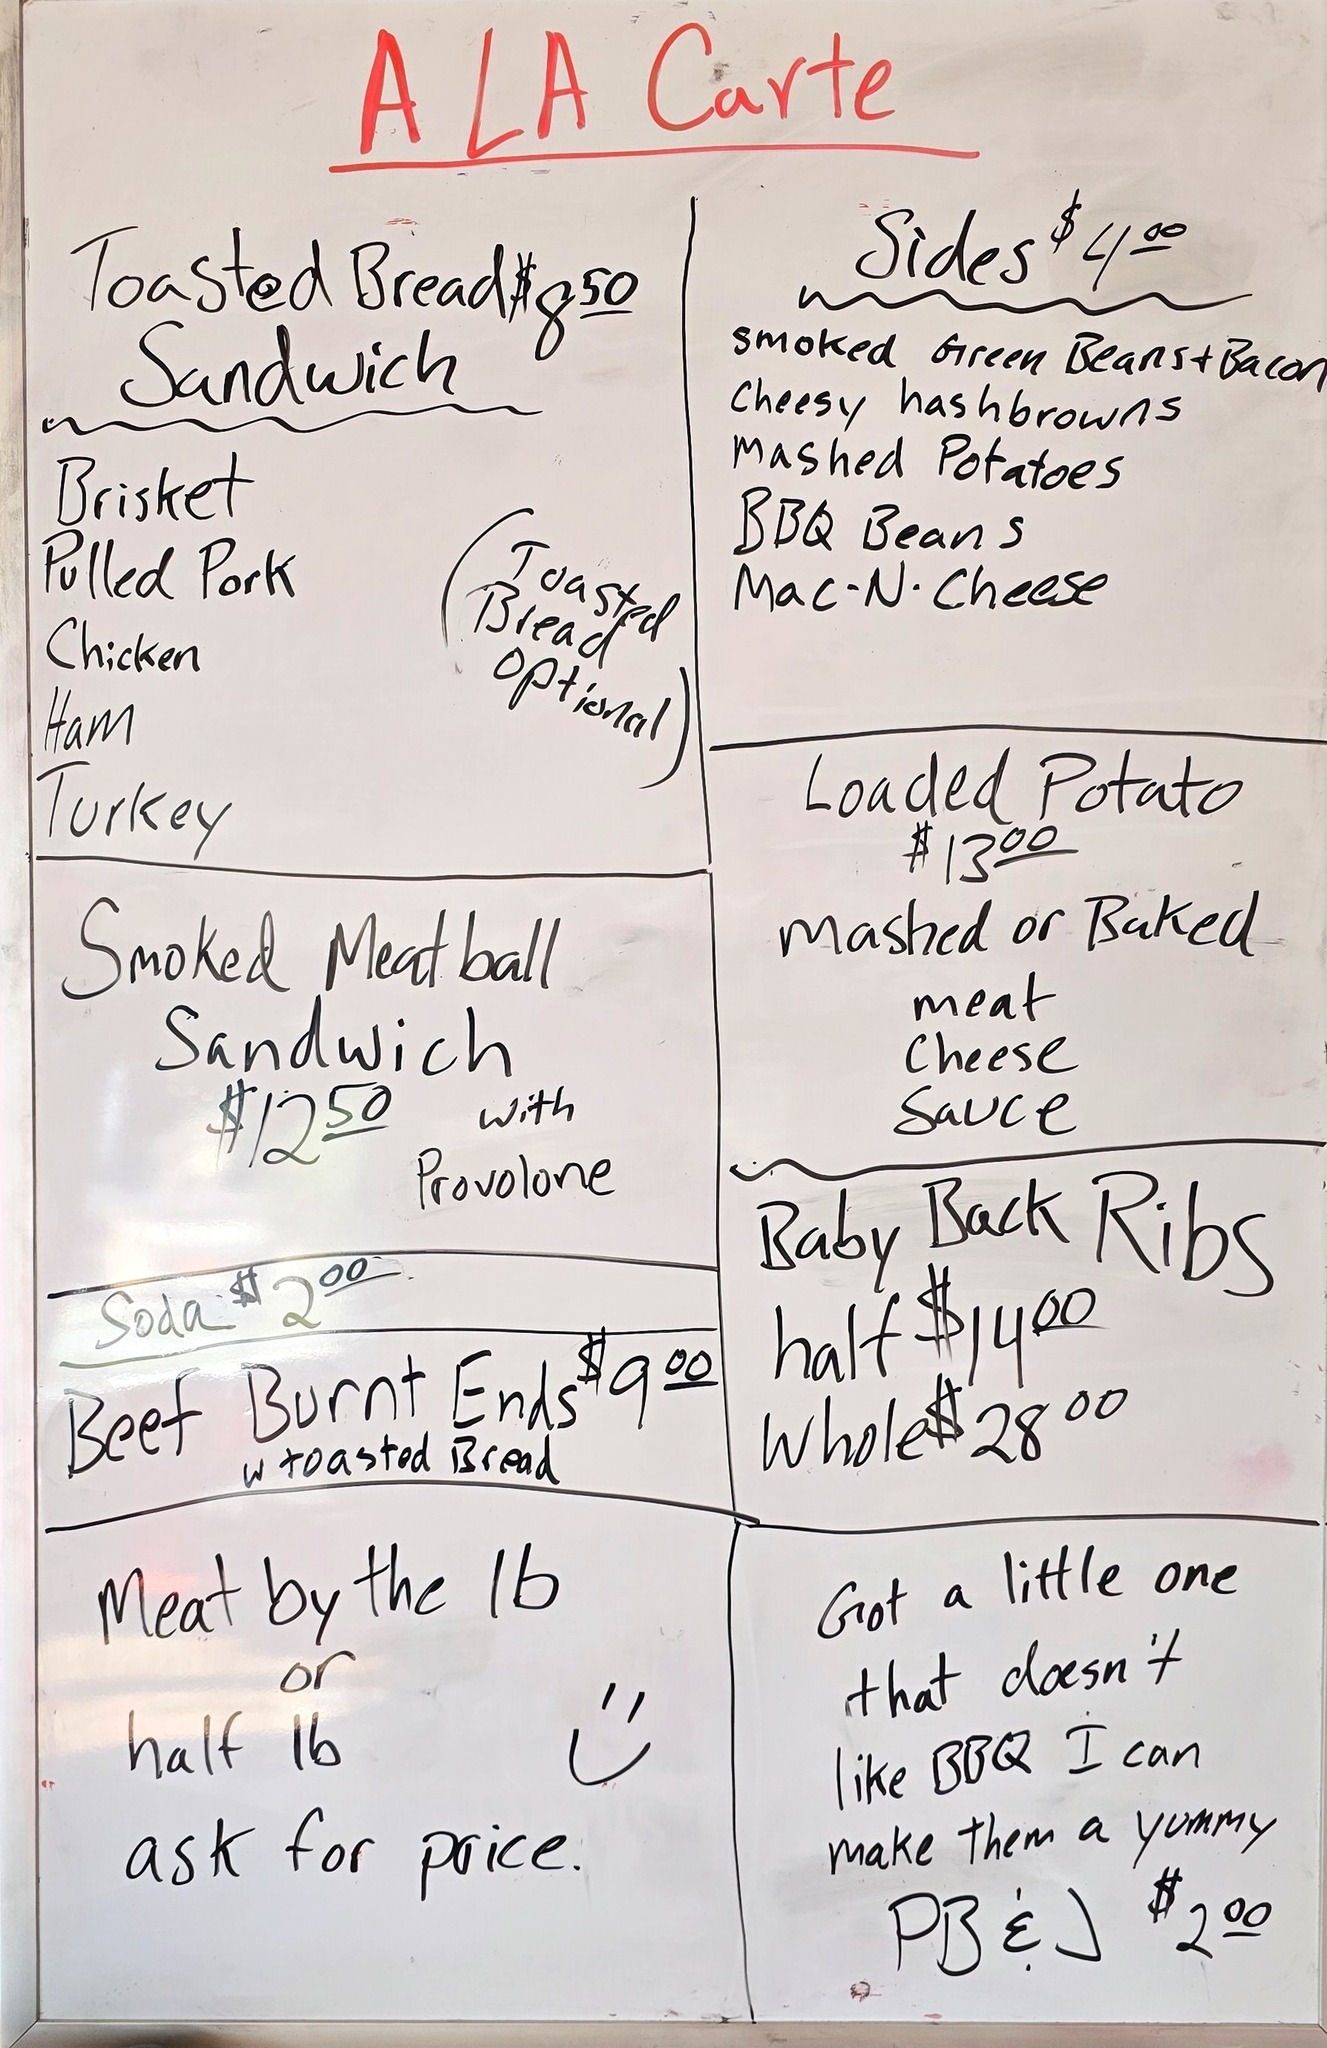 A LA Carte
Toasted Bread $8.50
Sandwich
Brisket
Pulled Pork
Chicken
Ham
Turkey
(Toasted
Bread
Optional)
Smoked Meatball
Sandwich
$12.50 with
Provolone
Soda $2.00
Beef Burnt Ends $9.00
w toasted Bread
Meat by the lb
or
half lb
ask for price.
Sides $4.00
smoked Green Beans + Bacon
Cheesy hashbrowns
Mashed Potatoes
BBQ Beans
Mac-N-Cheese
Loaded Potato
$13.00
mashed or Baked
meat
Cheese
Sauce
Baby Back Ribs
half $14.00
Whole $28.00
Got a little one
that doesn't
like BBQ I can
make them a yummy
PB & J $2.00